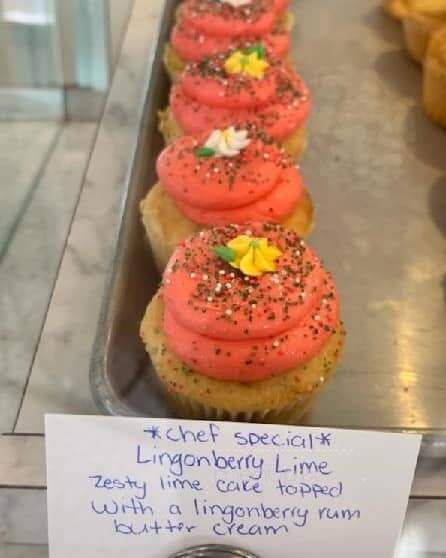 *chef special*
Lingonberry Lime
Zesty lime cake topped
with a lingonberry rum
butter cream